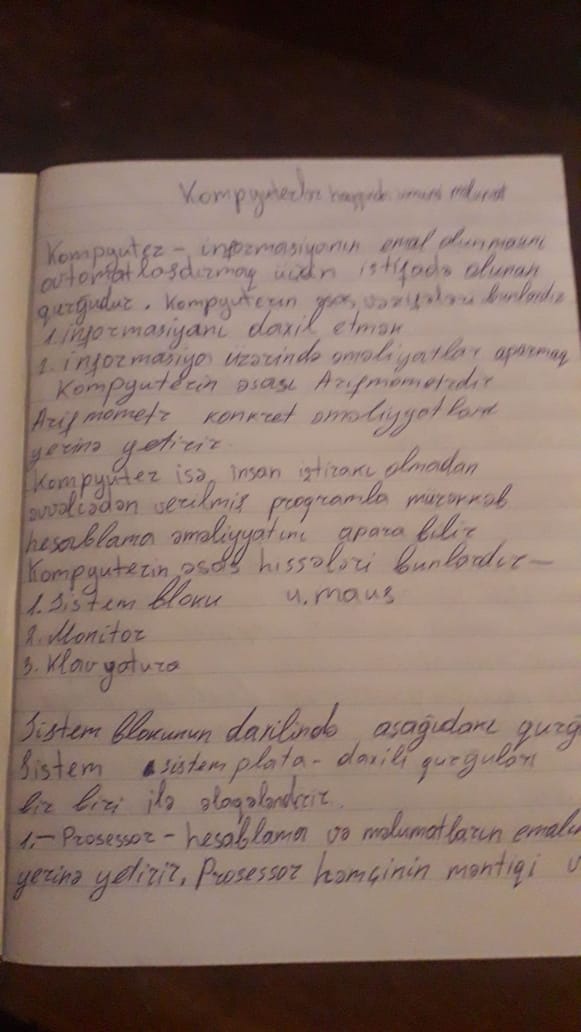 Kompyuterlər haqqında ümumi məlumat
Kompyuter - informasiyanın emal olunmasını
avtomatlaşdırmaq üçün istifadə olunan
qurğudur. Kompyuterin əsas vəzifələri bunlardır
1. informasiyanı daxil etmək
2. informasiya üzərində əməliyatlar aparmaq
Kompyuterin əsası Arifmometrdir
Arifmometr konkret əməliyyatları
yerinə yetirir.
Kompyuter isə, insan iştirakı olmadan
əvvəlcədən verilmiş programla mürəkkəb
hesablama əməliyyatını apara bilir
Kompyuterin əsas hissələri bunlardır -
1. Sistem bloku 4. maus
2. Monitor
3. Klavyatura
Sistem blokunun daxilində aşağıdakı qurğ
Sistem sistem plata - daxili qurğuları
bir biri ilə əlaqələndirir.
1. - Prosessor - hesablama və məlumatların emalın
yerinə yetirir. Prosessor həmçinin məntiqi v